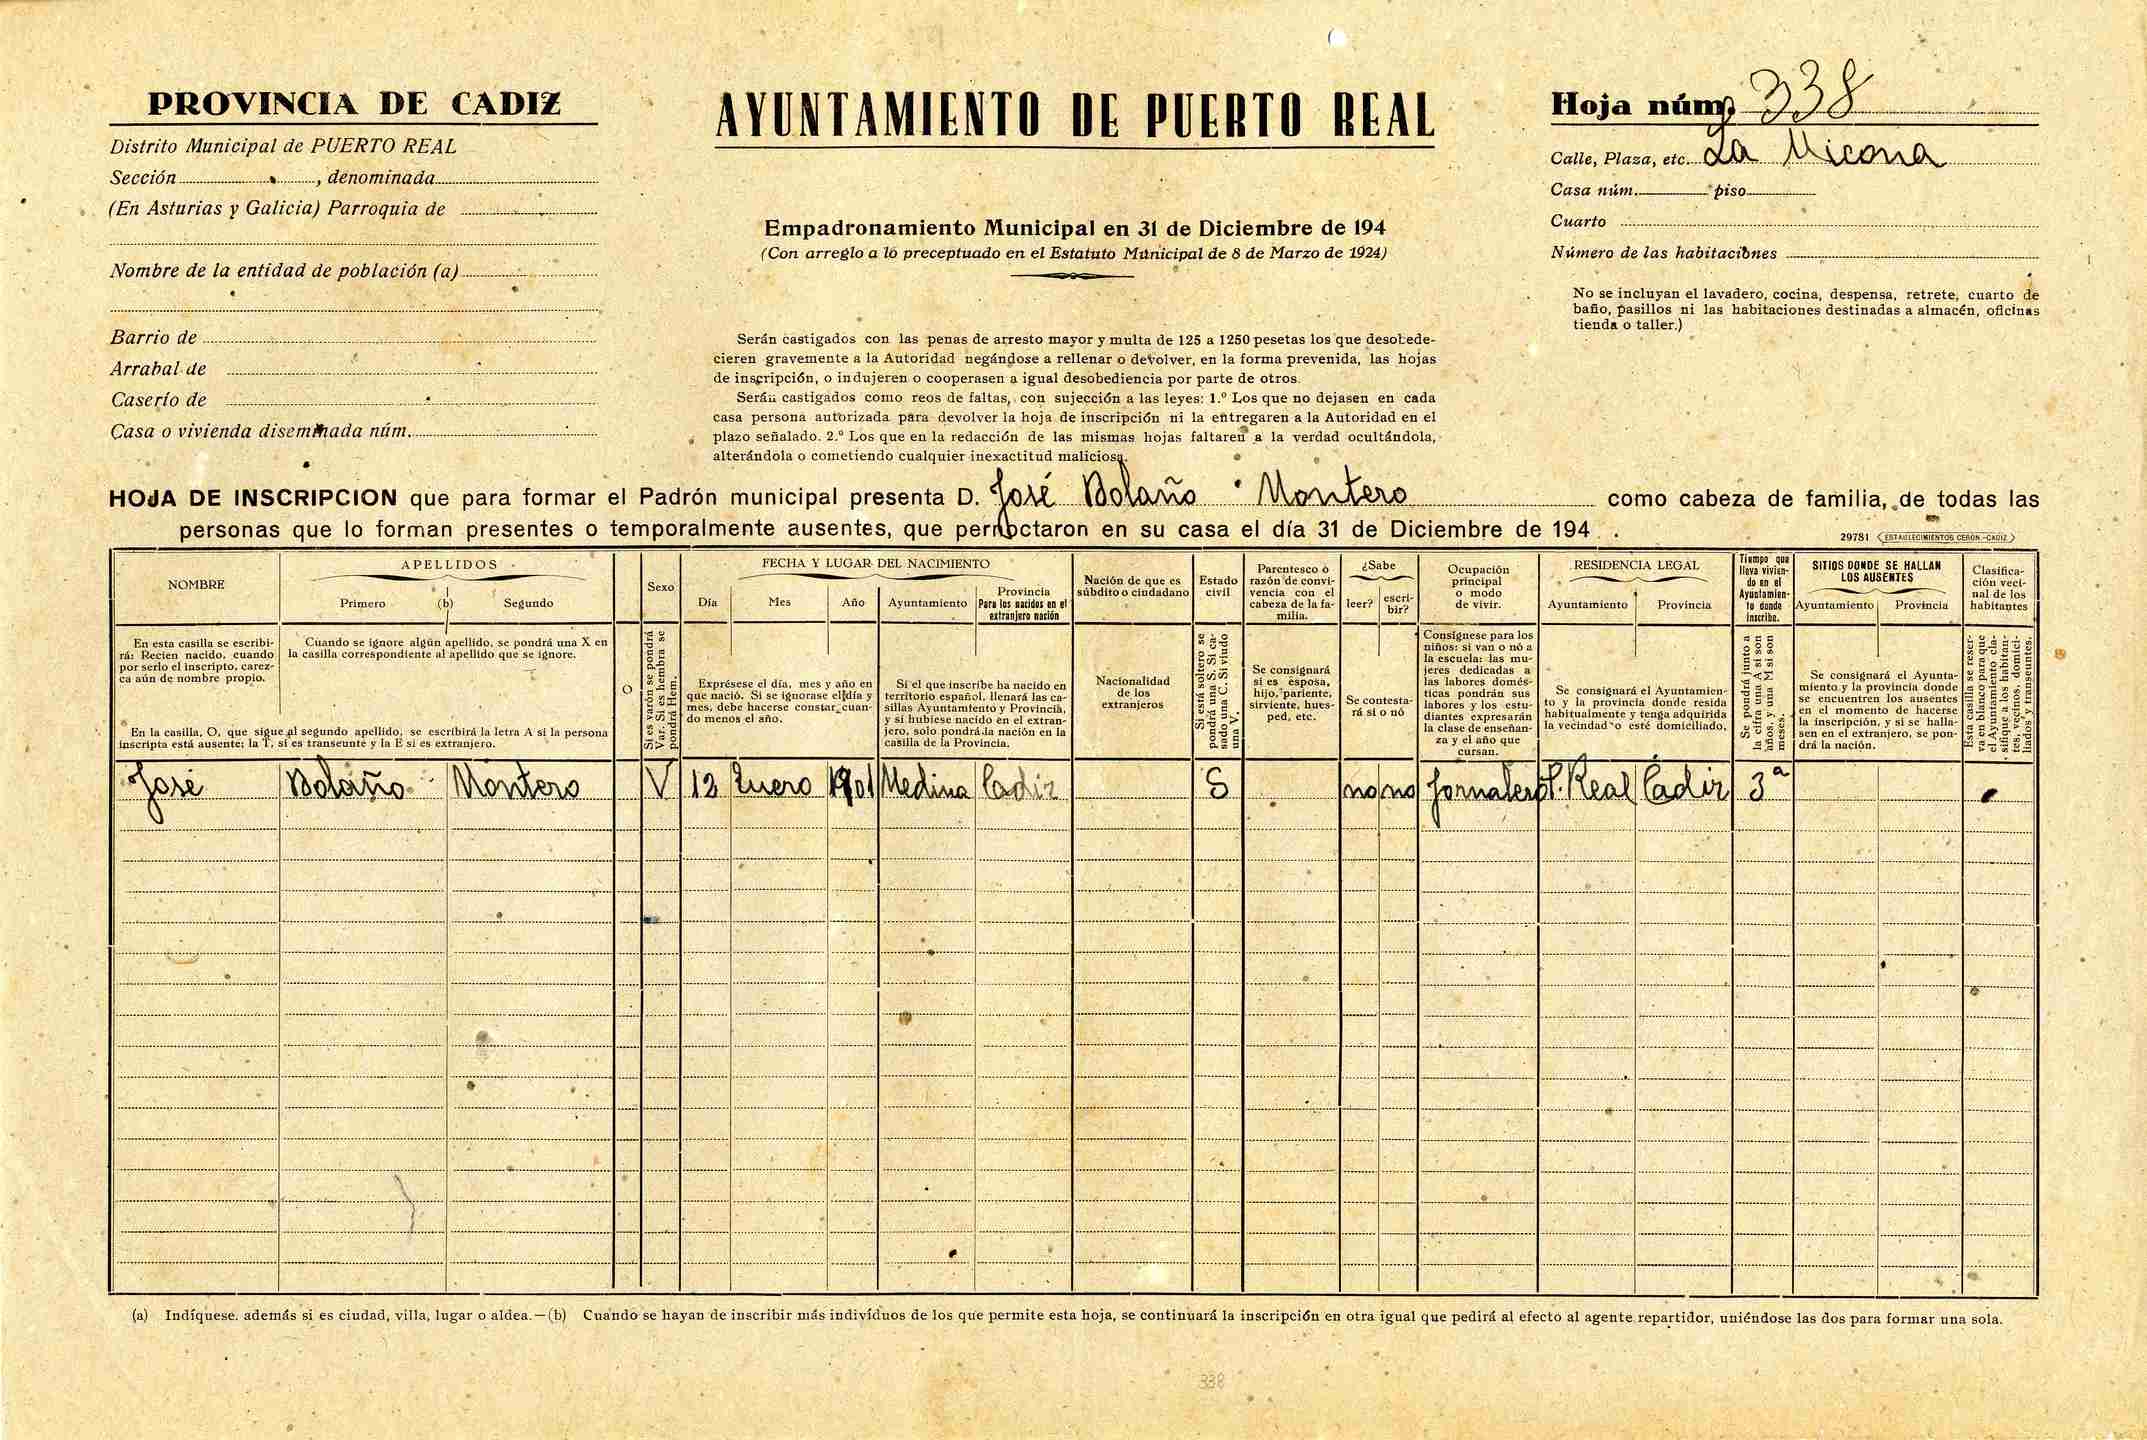 PROVINCIA DE CADIZ
Distrito Municipal de PUERTO REAL
Sección , denominada
(En Asturias y Galicia) Parroquia de
Nombre de la entidad de población (a)
Barrio de
Arrabal de
Caserío de
Casa o vivienda diseminada núm.
AYUNTAMIENTO DE PUERTO REAL
Empadronamiento Municipal en 31 de Diciembre de 194
(Con arreglo a lo preceptuado en el Estatuto Municipal de 8 de Marzo de 1924)
Serán castigados con las penas de arresto mayor y multa de 125 a 1250 pesetas los que desobede-
cieren gravemente a la Autoridad negándose a rellenar o devolver, en la forma prevenida, las hojas
de inscripción, o indujeren o cooperasen a igual desobediencia por parte de otros.
Serán castigados como reos de faltas, con sujección a las leyes: 1.º Los que no dejasen en cada
casa persona autorizada para devolver la hoja de inscripción ni la entregaren a la Autoridad en el
plazo señalado. 2.º Los que en la redacción de las mismas hojas faltaren a la verdad ocultándola,
alterándola o cometiendo cualquier inexactitud maliciosa.
Hoja núm. 338
Calle, Plaza, etc. La Micona
Casa núm. piso
Cuarto
Número de las habitaciones
No se incluyan el lavadero, cocina, despensa, retrete, cuarto de
baño, pasillos ni las habitaciones destinadas a almacén, oficinas
tienda o taller.)
HOJA DE INSCRIPCION que para formar el Padrón municipal presenta D. José Bolaño Montero como cabeza de familia, de todas las
personas que lo forman presentes o temporalmente ausentes, que pernoctaron en su casa el día 31 de Diciembre de 194 .
29781 ESTABLECIMIENTOS CERON.-CADIZ
NOMBRE
APELLIDOS
Primero (b) Segundo
Sexo
FECHA Y LUGAR DEL NACIMIENTO
Día Mes Año Ayuntamiento
Provincia
Para los nacidos en el
extranjero nación
Nación de que es
súbdito o ciudadano
Estado
civil
Parentesco o
razón de convi-
vencia con el
cabeza de la fa-
milia.
¿Sabe
leer?
escri-
bir?
Ocupación
principal
o modo
de vivir.
RESIDENCIA LEGAL
Ayuntamiento Provincia
Tiempo que
lleva vivien-
do en el
Ayuntamien-
to donde
inscribe.
SITIOS DONDE SE HALLAN
LOS AUSENTES
Ayuntamiento Provincia
Clasifica-
ción veci-
nal de los
habitantes
En esta casilla se escribi-
rá: Recien nacido, cuando
por serlo el inscripto, carez-
ca aún de nombre propio.
Cuando se ignore algún apellido, se pondrá una X en
la casilla correspondiente al apellido que se ignore.
En la casilla, O, que sigue al segundo apellido, se escribirá la letra A si la persona
inscripta está ausente; la T, si es transeunte y la E si es extranjero.
O
Si es varón se pondrá
Var. Si es hembra se
pondrá Hem.
Exprésese el día, mes y año en
que nació. Si se ignorase el día y
mes, debe hacerse constar, cuan-
do menos el año.
Si el que inscribe ha nacido en
territorio español, llenará las ca-
sillas Ayuntamiento y Provincia,
y si hubiese nacido en el extran-
jero, solo pondrá la nación en la
casilla de la Provincia.
Nacionalidad
de los
extranjeros
Si está soltero se
pondrá una S. Si ca-
sado una C. Si viudo
una V.
Se consignará
si es esposa,
hijo, pariente,
sirviente, hues-
ped, etc.
Se contesta-
rá si o nó
Consígnese para los
niños: si van o nó a
la escuela: las mu-
jeres dedicadas a
las labores domés-
ticas pondrán sus
labores y los estu-
diantes expresarán
la clase de enseñan-
za y el año que
cursan.
Se consignará el Ayuntamien-
to y la provincia donde resida
habitualmente y tenga adquirida
la vecindad o esté domiciliado.
Se pondrá junto a
la cifra una A si son
años, y una M si son
meses.
Se consignará el Ayunta-
miento y la provincia donde
se encuentren los ausentes
en el momento de hacerse
la inscripción, y si se halla-
sen en el extranjero, se pon-
drá la nación.
Esta casilla se reser-
va en blanco para que
el Ayuntamiento cla-
sifique a los habitan-
tes, vecinos, domici-
liados y transeuntes.
José Bolaño Montero V 12 Enero 1901 Medina Cadiz S no no Jornalero P. Real Cádiz 3ª
(a) Indíquese. además si es ciudad, villa, lugar o aldea.—(b) Cuando se hayan de inscribir más indivíduos de los que permite esta hoja, se continuará la inscripción en otra igual que pedirá al efecto al agente repartidor, uniéndose las dos para formar una sola.
338